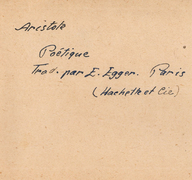 Aristote
Poétique
Trad. par E. Egger. Paris
(Hachette et Cie)